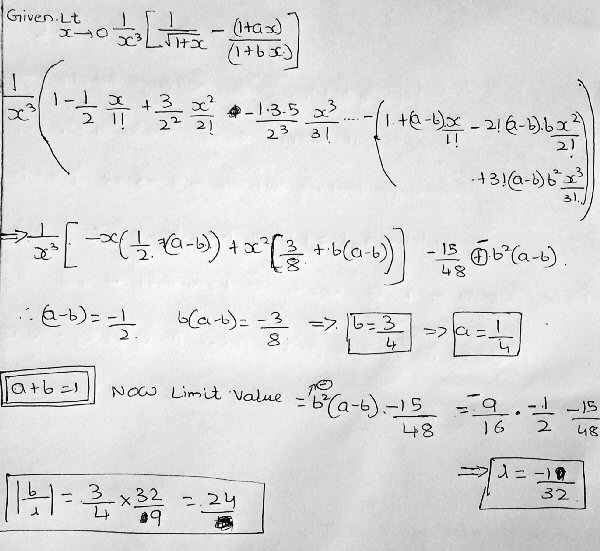 Given. Lt x→0 1/x³ [ 1/√(1+x) - (1+ax)/(1+bx) ]
1/x³ ( 1 - 1/2 x/1! + 3/2² x²/2! - 1·3·5/2³ x³/3! ---- - ( 1 + (a-b)x/1! - 2!(a-b)·b x²/2!
·+3!(a-b)b² x³/3! ) )
⇒ 1/x³ [ -x(1/2 +(a-b)) + x²[3/8 + b(a-b)) ] - 15/48 - b²(a-b).
∴ (a-b) = -1/2 b(a-b) = -3/8 ⇒ b = 3/4 ⇒ a = 1/4
a+b=1 Now Limit Value = -b²(a-b) - 15/48 = -9/16 · -1/2 - 15/48
⇒ λ = -1/32
|b/λ| = 3/4 × 32 = 24